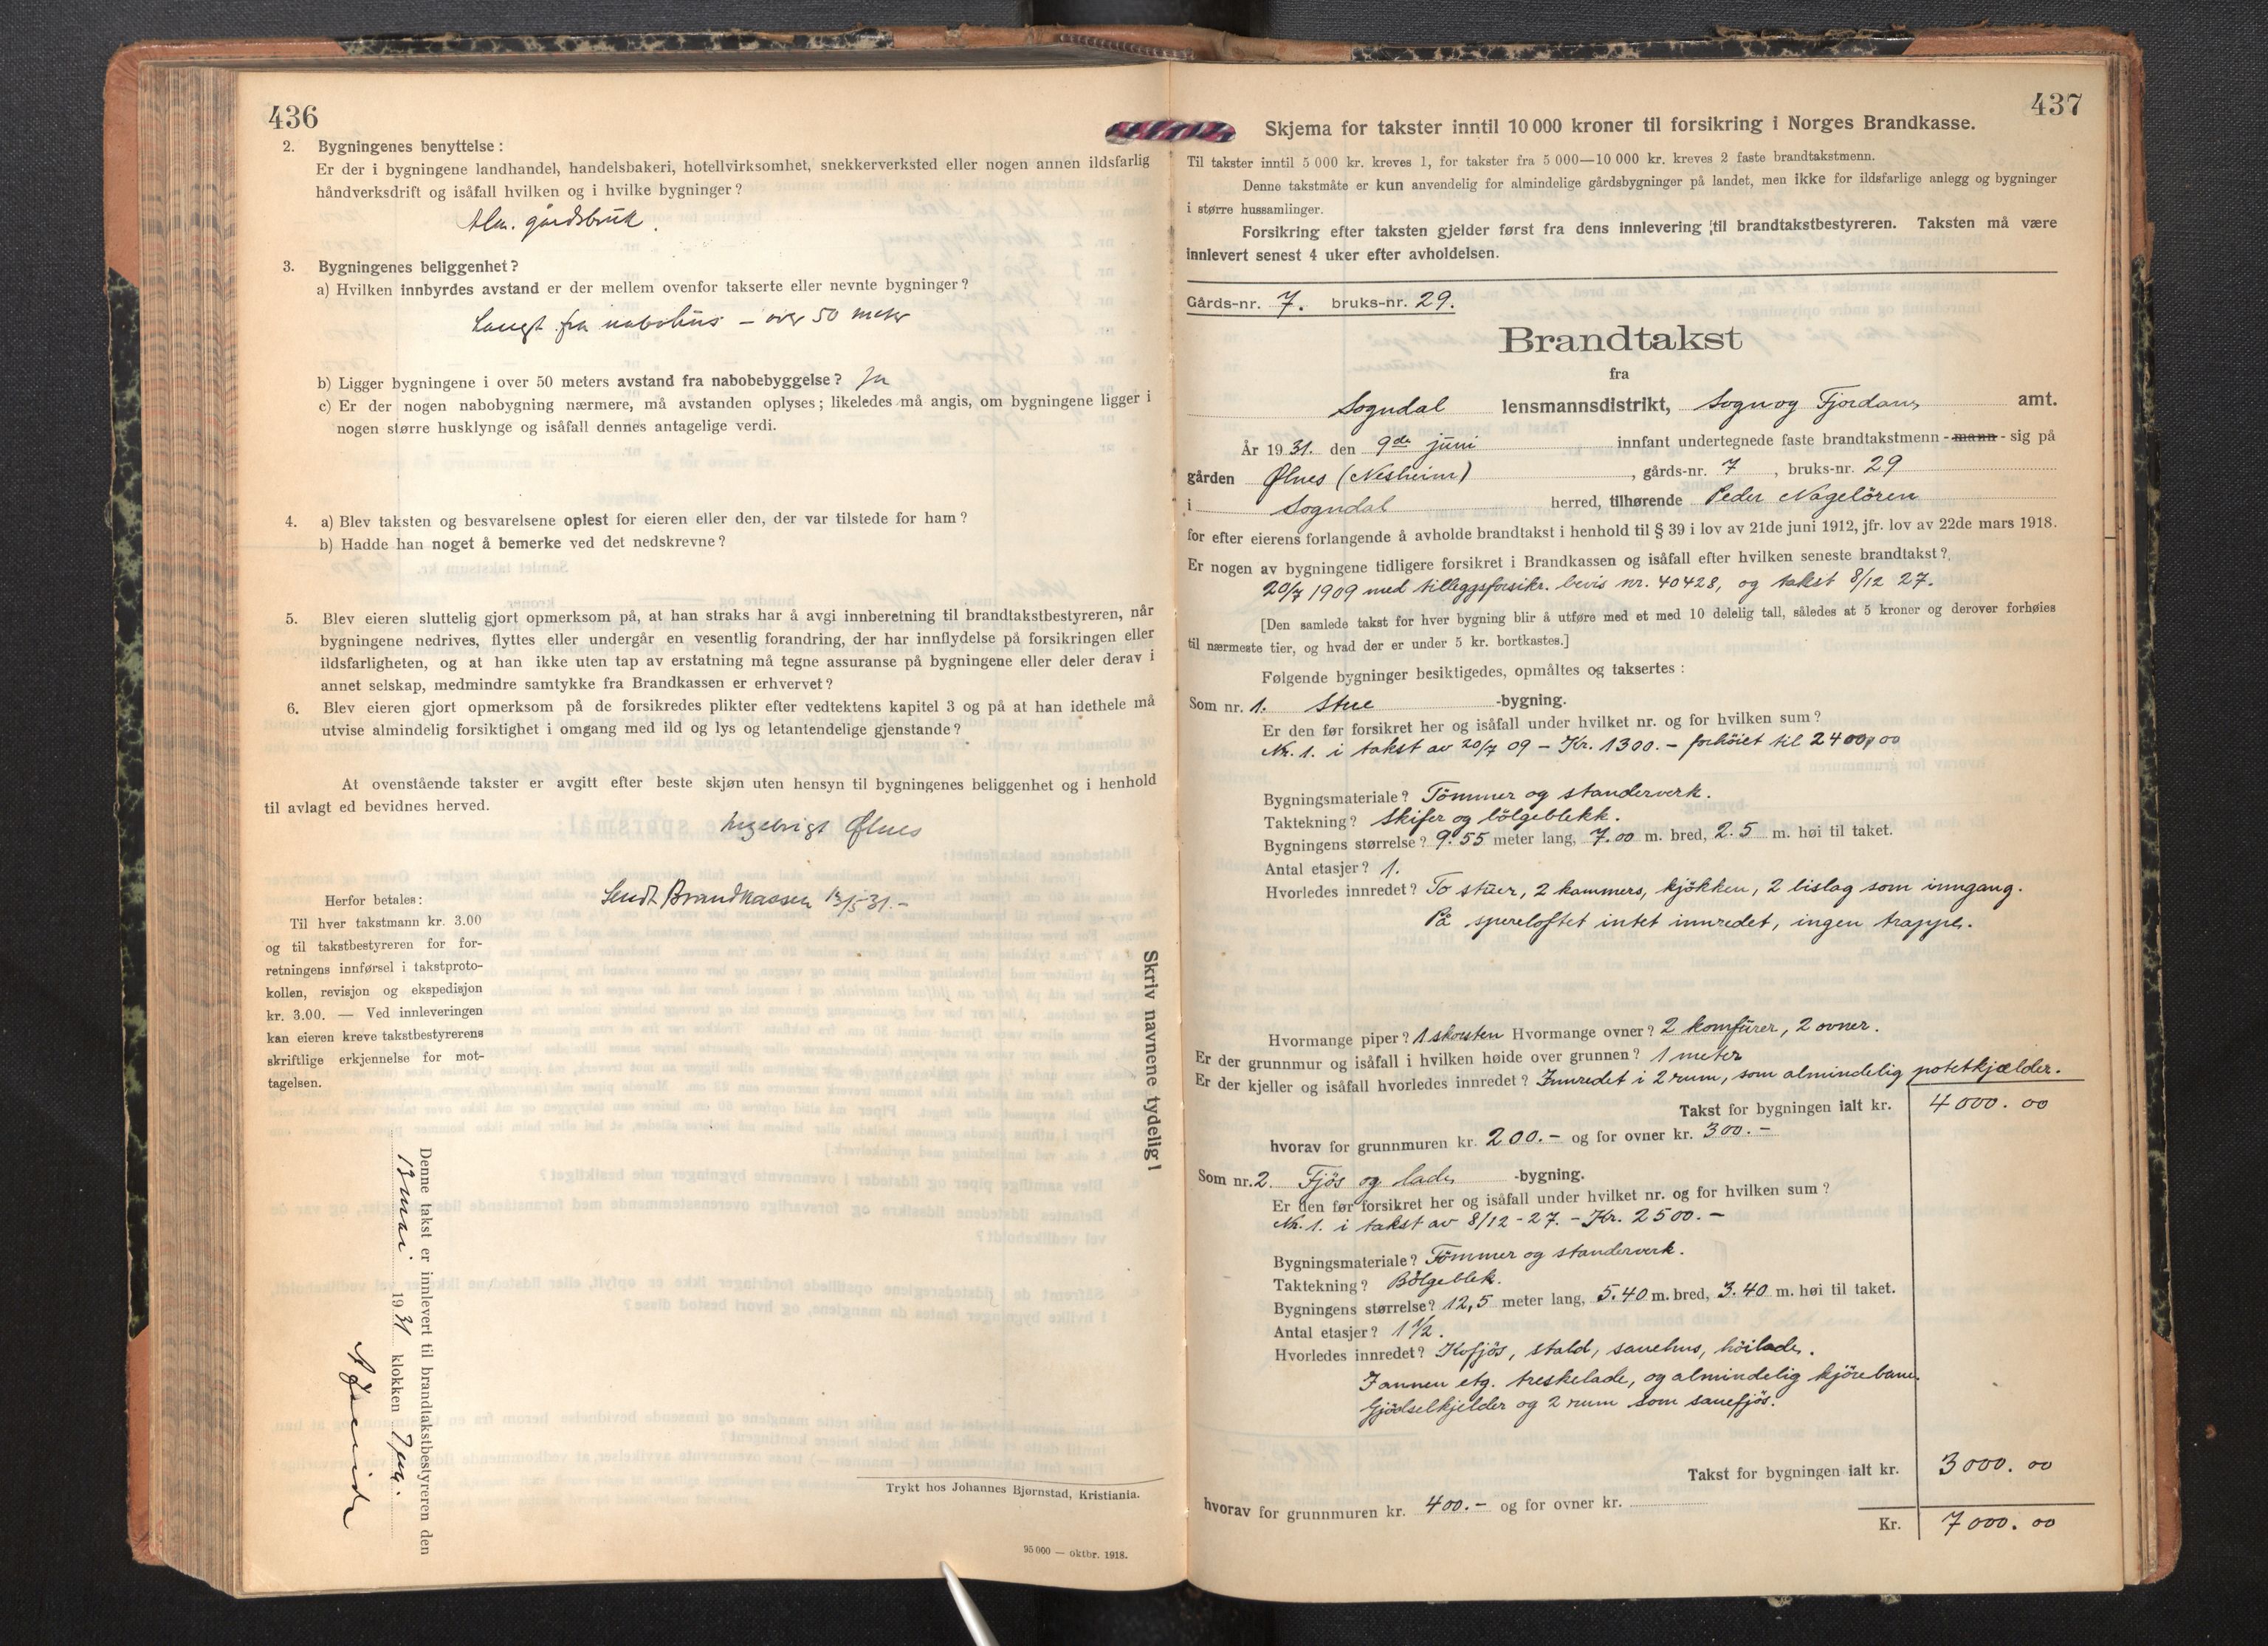 436
2. Bygningenes benyttelse :
Er der i bygningene landhandel, handelsbakeri, hotellvirksomhet, snekkerverksted eller nogen annen ildsfarlig
håndverksdrift og isåfall hvilken og i hvilke bygninger ?
Alm. gårdsbruk.
3. Bygningenes beliggenhet ?
a) Hvilken innbyrdes avstand er der mellem ovenfor takserte eller nevnte bygninger ?
Langt fra nabohus – over 50 meter
b) Ligger bygningene i over 50 meters avstand fra nabobebyggelse ? Ja
c) Er der nogen nabobygning nærmere, må avstanden oplyses ; likeledes må angis, om bygningene ligger i
nogen større husklynge og isåfall dennes antagelige verdi.
4. a) Blev taksten og besvarelsene oplest for eieren eller den, der var tilstede for ham ?
b) Hadde han noget å bemerke ved det nedskrevne ?
5. Blev eieren sluttelig gjort opmerksom på, at han straks har å avgi innberetning til brandtakstbestyreren, når
bygningene nedrives, flyttes eller undergår en vesentlig forandring, der har innflydelse på forsikringen eller
ildsfarligheten, og at han ikke uten tap av erstatning må tegne assuranse på bygningene eller deler derav i
annet selskap, medmindre samtykke fra Brandkassen er erhvervet ?
6. Blev eieren gjort opmerksom på de forsikredes plikter efter vedtektens kapitel 3 og på at han idethele må
utvise almindelig forsiktighet i omgang med ild og lys og letantendelige gjenstande ?
At ovenstående takster er avgitt efter beste skjøn uten hensyn til bygningenes beliggenhet og i henhold
til avlagt ed bevidnes herved.
Ingebrigt Ølnes
Sendt Brandkassen 13/5 31.–
Herfor betales :
Til hver takstmann kr. 3.00
og til takstbestyreren for for-
retningens innførsel i takstproto-
kollen, revisjon og ekspedisjon
kr. 3.00. — Ved innleveringen
kan eieren kreve takstbestyrerens
skriftlige erkjennelse for mot-
tagelsen.
Skriv navnene tydelig !
Denne takst er innlevert til brandtakstbestyreren den
13 mai 1931 klokken 7
Trykt hos Johannes Bjørnstad, Kristiania.
95 000 — oktbr. 1918.
437
Skjema for takster inntil 10 000 kroner til forsikring i Norges Brandkasse.
Til takster inntil 5 000 kr. kreves 1, for takster fra 5 000—10 000 kr. kreves 2 faste brandtakstmenn.
Denne takstmåte er kun anvendelig for almindelige gårdsbygninger på landet, men ikke for ildsfarlige anlegg og bygninger
i større hussamlinger.
Forsikring efter taksten gjelder først fra dens innlevering til brandtakstbestyreren. Taksten må være
innlevert senest 4 uker efter avholdelsen.
Gårds-nr. 7. bruks-nr. 29.
Brandtakst
fra
Sogndal lensmannsdistrikt, Sogn og Fjordane amt.
År 1931. den 9de juni innfant undertegnede faste brandtakstmenn - mann - sig på
gården Ølnes (Nesheim), gårds-nr. 7, bruks-nr. 29
i Sogndal herred, tilhørende Peder Nagelören
for efter eierens forlangende å avholde brandtakst i henhold til § 39 i lov av 21de juni 1912, jfr. lov av 22de mars 1918.
Er nogen av bygningene tidligere forsikret i Brandkassen og isåfall efter hvilken seneste brandtakst ?
20/7 1909 med tilleggsforsikr. bevis nr. 40428, og takst 8/12 27.
[Den samlede takst for hver bygning blir å utføre med et med 10 delelig tall, således at 5 kroner og derover forhøies
til nærmeste tier, og hvad der er under 5 kr. bortkastes.]
Følgende bygninger besiktigedes, opmåltes og taksertes :
Som nr. 1. Stue -bygning.
Er den før forsikret her og isåfall under hvilket nr. og for hvilken sum ?
Nr. 1. i takst av 20/7 09 – Kr. 1300.– forhöiet til 2400,00
Bygningsmateriale ? Tömmer og standerverk.
Taktekning ? Skifer og bölgeblekk.
Bygningens størrelse ? 9.55 meter lang, 7.00 m. bred, 2.5 m. høi til taket.
Antal etasjer ? 1.
Hvorledes innredet ? To stuer, 2 kammers, kjökken, 2 bislag som inngang.
På spereloftet intet innredet, ingen trapper.
Hvormange piper ? 1 skorsten Hvormange ovner ? 2 komfürer, 2 ovner.
Er der grunnmur og isåfall i hvilken høide over grunnen ? 1 meter
Er der kjeller og isåfall hvorledes innredet ? Innredet i 2 rum, som almindelig potetkjælder.
Takst for bygningen ialt kr. 4000.00
hvorav for grunnmuren kr. 200.– og for ovner kr. 300.–
Som nr. 2. Fjös og lade -bygning.
Er den før forsikret her og isåfall under hvilket nr. og for hvilken sum ?
Nr. 1. i takst av 8/12 - 27. – Kr. 2500.–
Bygningsmateriale ? Tömmer og standerverk.
Taktekning ? Bölgeblek.
Bygningens størrelse ? 12,5 meter lang, 5.40 m. bred, 3.40 m. høi til taket.
Antal etasjer ? 1 1/2.
Hvorledes innredet ? Kufjös, stald, sauehus, höilade.
I annen etg. treskelade, og almindelig kjörebane.
Gjödselkjelder og 2 rum som sauefjös.
Takst for bygningen ialt kr. 3000.00
hvorav for grunnmuren kr. 400.– og for ovner kr.
Kr. 7000.00